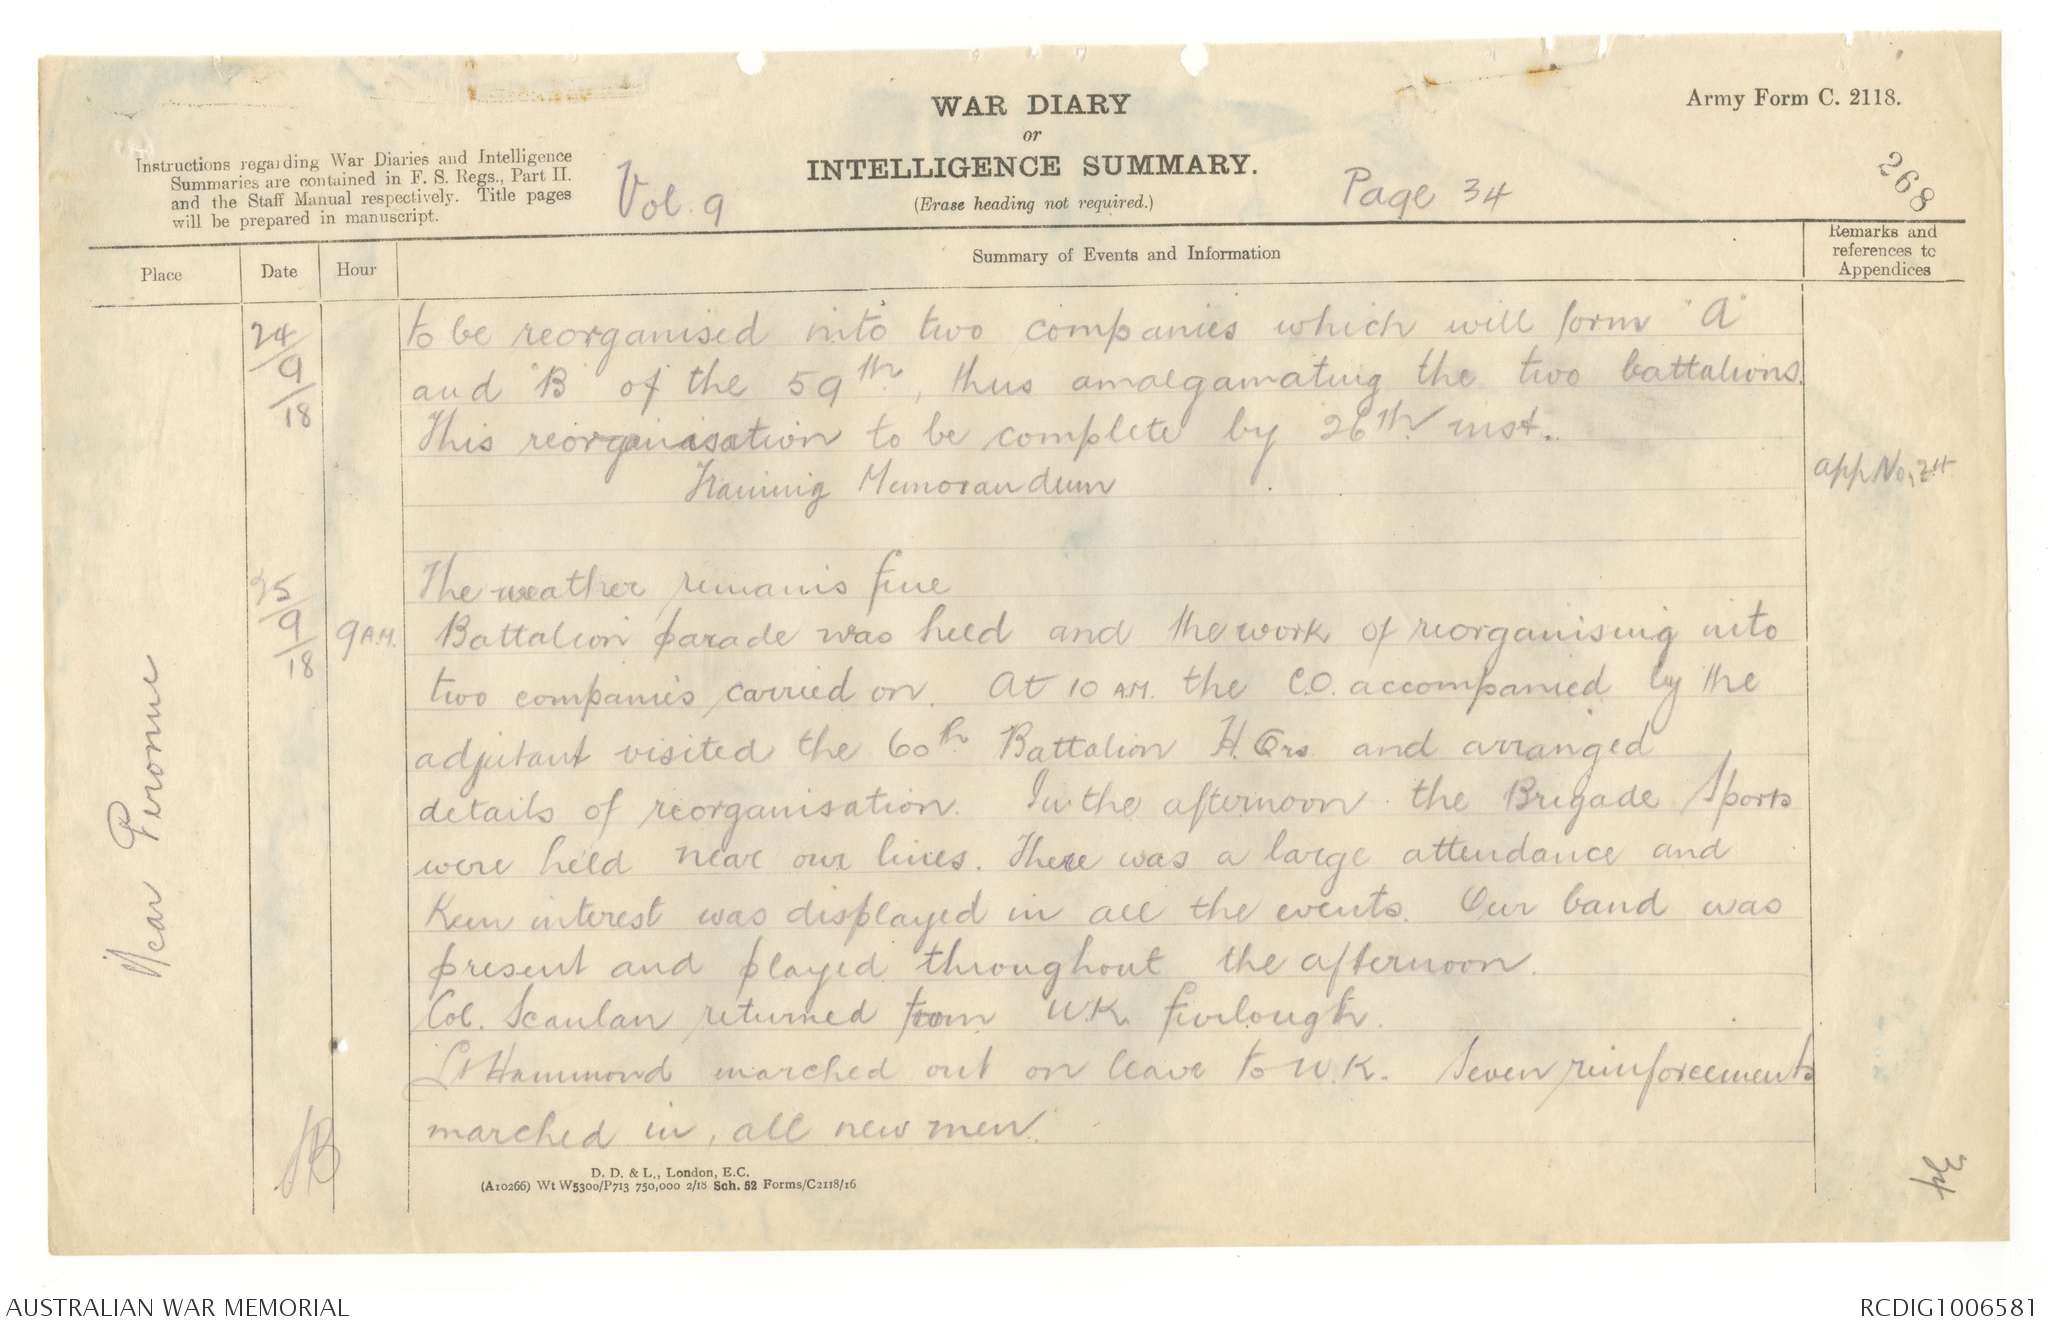 WAR DIARY
or
INTELLIGENCE SUMMARY.
(Erase heading not required.)
Army Form C. 2118.
Instructions regarding War Diaries and Intelligence
Summaries are contained in F. S. Regs., Part II.
and the Staff Manual respectively. Title pages
will be prepared in manuscript.
Vol. 9
Page 34
268
Place
Date
Hour
Summary of Events and Information
Remarks and
references to
Appendices
Near Peronne
24/9/18
to be reorganised into two companies which will form "A"
and "B" of the 59th, thus amalgamating the two battalions.
This reorganisation to be complete by 26th inst.
Training Memorandum
app No,
25/9/18
The weather remains fine
9 A.M.
Battalion parade was held and the work of reorganising into
two companies carried on. At 10 A.M. the C.O. accompanied by the
adjutant visited the 60th Battalion H.Qrs and arranged
details of reorganisation. In the afternoon the Brigade Sports
were held near our lines. There was a large attendance and
Keen interest was displayed in all the events. Our band was
present and played throughout the afternoon.
Col. Scanlan returned from U.K. furlough.
Lt Hammond marched out on leave to U.K. Seven reinforcements
marched in, all new men.
34
D. D. & L., London, E.C.
(A10266) Wt W5300/P713 750,000 2/18 Sch. 52 Forms/C2118/16
AUSTRALIAN WAR MEMORIAL
RCDIG1006581